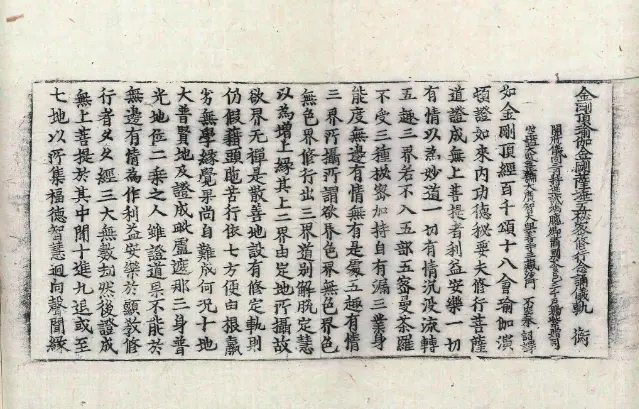 金剛頂瑜伽金剛薩埵五秘密修行念誦儀軌 衡
開府儀同三司特進試鴻臚卿肅國公食邑三千戶賜紫贈司
大廣智 三藏沙門不空奉詔譯
如金剛頂經百千頌十八會瑜伽演
頓證如來內功德秘要夫修行菩薩
道證成無上菩提者利益安樂一切
有情以為妙道一切有情沉沒流轉
五趣三界若不入五部五密曼荼羅
不受三種秘密加持自有漏三業身
能度無邊有情無有是處五趣有情
三界所攝所謂欲界色界無色界色
無色界修行出三界道別解脫定慧
以為增上緣其上二界由定地所攝故
欲界无禪是散善地設有修定軌則
仍假藉頭陁苦行依七方便由根羸
劣無學緣覺果尚自難成何況十地
大普賢地及證成毗盧遮那三身普
光地位二乘之人雖證道果不能於
無邊有情為作利益安樂於顯教修
行者久久經三大無數劫然後證成
無上菩提於其中間十進九退或至
七地以所集福德智慧迴向聲聞緣